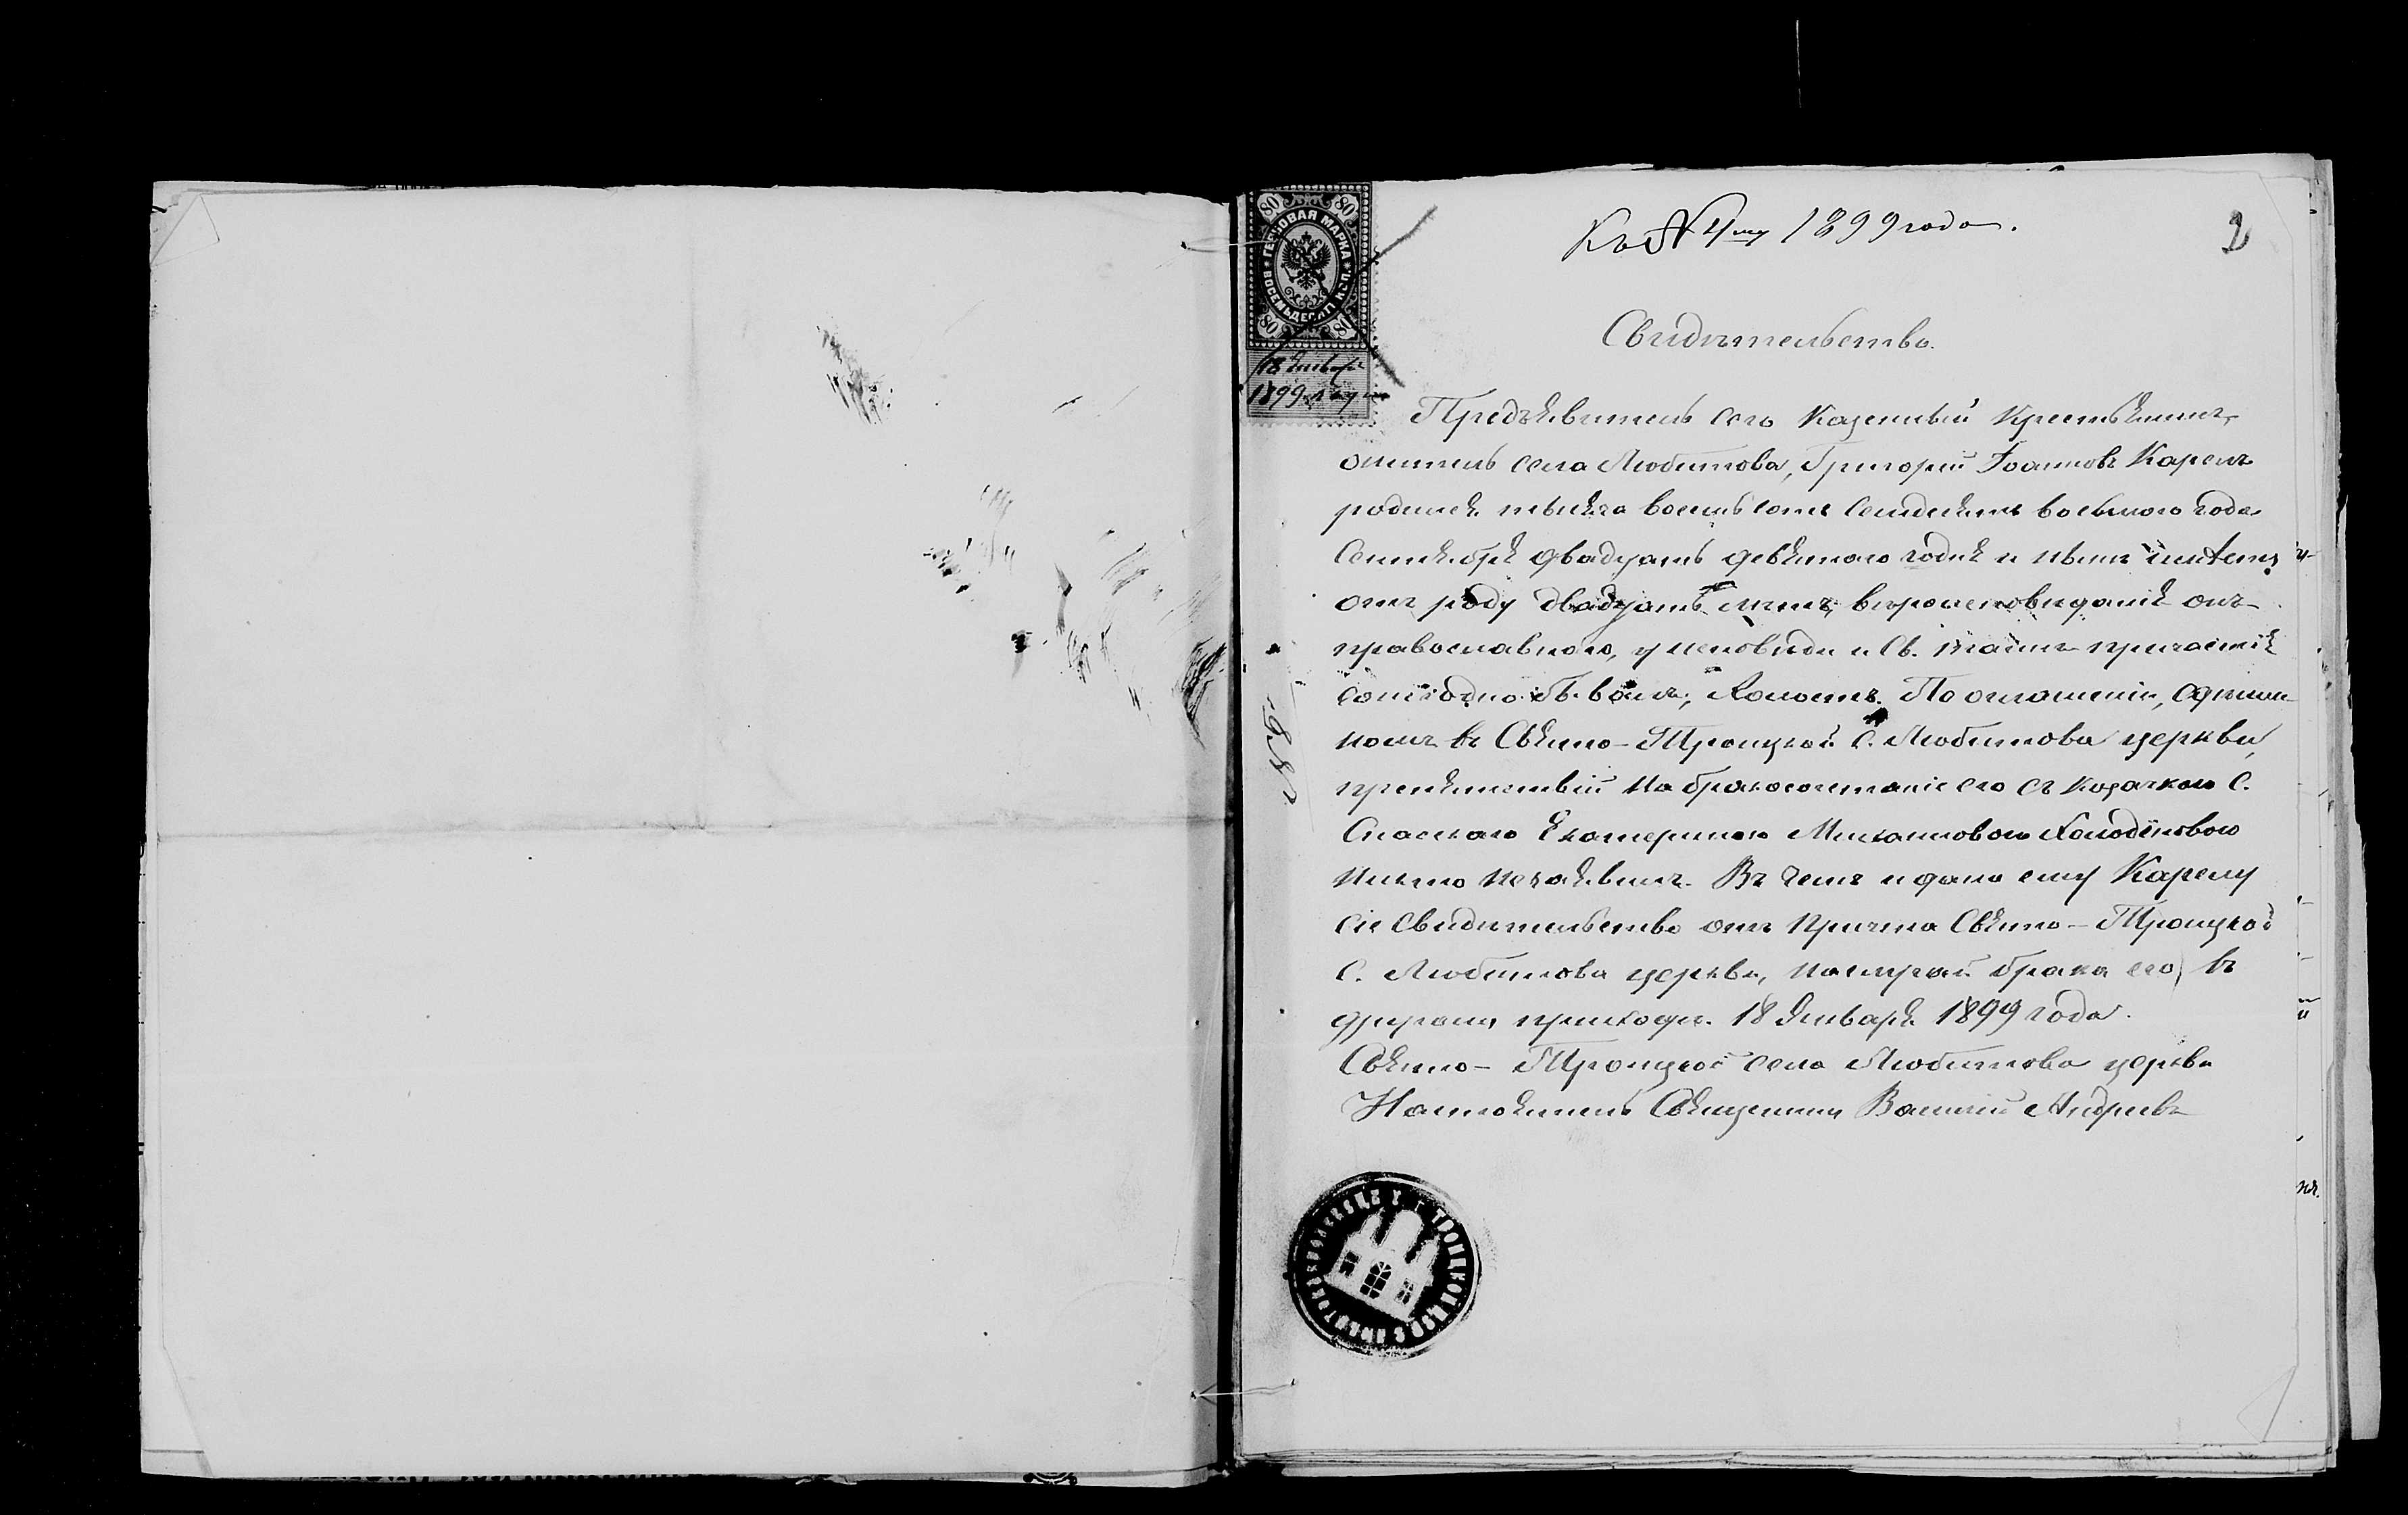 Къ № 4му 1899 года.
2
80 80
ГЕРБОВАЯ МАРКА
ВОСЕМЬДЕСЯТ КОП.
80 80
18 Января
1899 году
Свидѣтельство.
Предъявитель сего Казенный Крестьянинъ,
житель села Любитова, Григорій Іоанновъ Карень
родился тысяча восемьсотъ семдесятъ восьмого года
Сентября двадцать девятого годня и нынѣ имѣетъ
отъ роду двадцать лѣтъ, вѣроисповѣданія онъ
православного, у исповѣди и Св. таинъ причастія
ежегодно бывалъ; Холостъ. По оглашеніи, сдѣлан-
номъ въ Свято-Троицкой с. Любитова церкви,
препятствій на бракосочетаніе его съ козачкою с.
Спасскаго Екатериною Михаиловою Холодиновою
никто незаявилъ. Въ чемъ и дано ему Карену
сіе свидѣтельство отъ Причта Свято-Троицкой
с. Любитова церкви, на случай брака его, въ
другомъ приходѣ. 18 Января 1899 года.
Свято-Троицкой села Любитова церкви
Настоятель Священникъ Василій Андреевъ